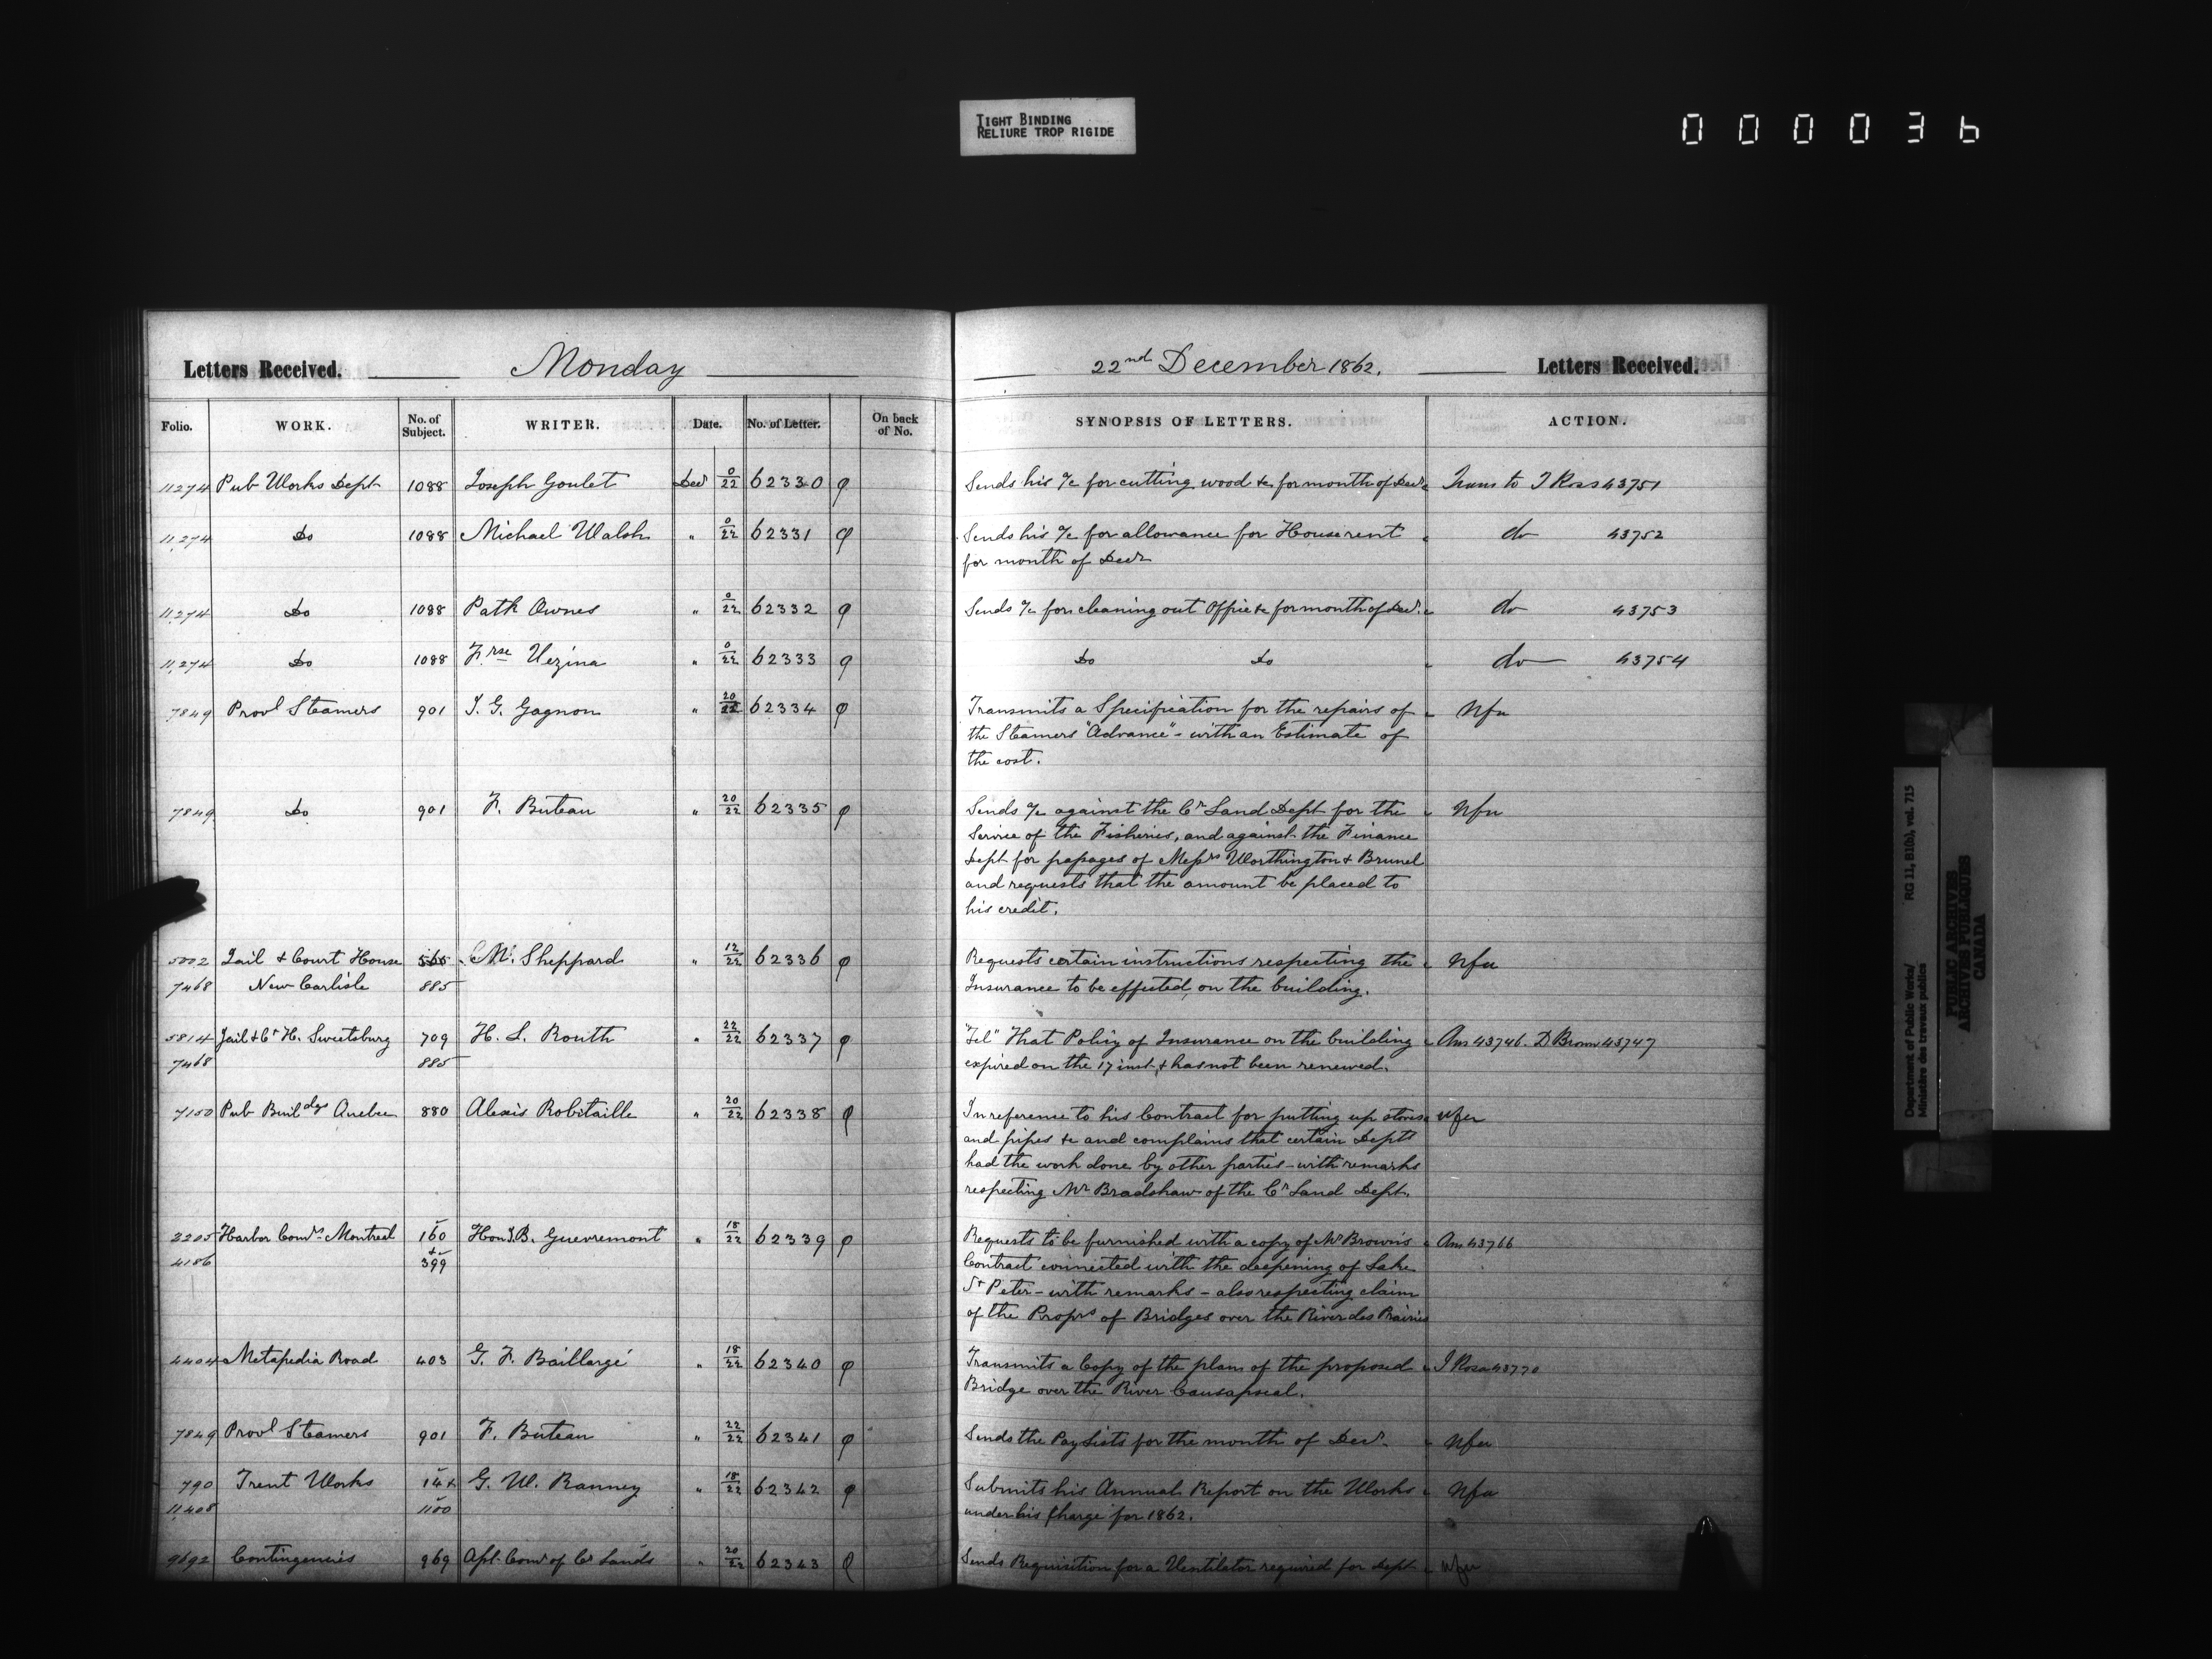 TIGHT BINDING
RELIURE TROP RIGIDE
0 0 0 0 3 6
Letters Received. Monday
22nd December 1862. Letters Received.
Folio. WORK. No. of Subject. WRITER. Date. No. of Letter. On back of No. SYNOPSIS OF LETTERS. ACTION.
11274 Pub Works Dept 1088 Joseph Goulet Decr 0/22 62330 Sends his a/c for cutting wood &c for month of Decr Trans to J Ross 43751
11,274 Do 1088 Michael Walsh " 0/22 62331 Sends his a/c for allowance for House rent do 43752
for month of Decr
11,274 Do 1088 Patk Ownes " 0/22 62332 Sends a/c for cleaning out Office &c for month of Decr. do 43753
11,274 Do 1088 F.rse Vezina " 0/22 62333 Do Do do 43754
7849 Provl Steamers 901 J. G. Gagnon " 20/22 62334 Transmits a Specification for the repairs of Nfa
the Steamers "Advance" - with an Estimate of
the cost.
7849 Do 901 F. Buteau " 20/22 62335 Sends a/c against the Cn Land Dept for the Nfa
Service of the Fisheries, and against the Finance
Dept for passages of Messrs Worthington & Brunel
and requests that the amount be placed to
his credit.
5002 Jail & Court House 565 M. Sheppard " 12/22 62336 Requests certain instructions respecting the Nfa
7468 New Carlisle 885 Insurance to be effected, on the building.
5814 Jail & Ct H. Sweetsburg 709 H. L. Routh " 22/22 62337 "Tel" That Policy of Insurance on the building Ans 43746. D Brown 43747
7468 885 expired on the 17 inst. & has not been renewed.
7150 Pub Buildgs Quebec 880 Alexis Robitaille " 20/22 62338 In reference to his Contract for putting up stoves Nfa
and pipes &c and complains that certain Depts
had the work done by other parties - with remarks
respecting Mr Bradshaw of the Cn Land Dept.
2205 Harbor Comrs Montreal 160 Hon J.B. Guevremont " 18/22 62339 Requests to be furnished with a copy of Mr Brown's Ans 43766
4186 & 399 Contract connected with the deepening of Lake
St Peter - with remarks - also respecting claim
of the Proprs of Bridges over the River des Prairies
4404 Metapedia Road 403 G. F. Baillargé " 18/22 62340 Transmits a Copy of the plan of the proposed J Rosa 43770
Bridge over the River Causapscal.
7849 Provl Steamers 901 F. Buteau " 22/22 62341 Sends the Pay Lists for the month of Decr. Nfa
790 Trent Works 14 & G. W. Ranney " 18/22 62342 Submits his Annual Report on the Works Nfa
11,408 1100 under his Charge for 1862.
9692 Contingencies 969 Asst. Comr of Cn Lands " 20/22 62343 Sends Requisition for a Ventilator required for Dept Nfa
Department of Public Works/ RG 11, B1(b), vol. 715
Ministère des travaux publics
PUBLIC ARCHIVES
ARCHIVES PUBLIQUES
CANADA